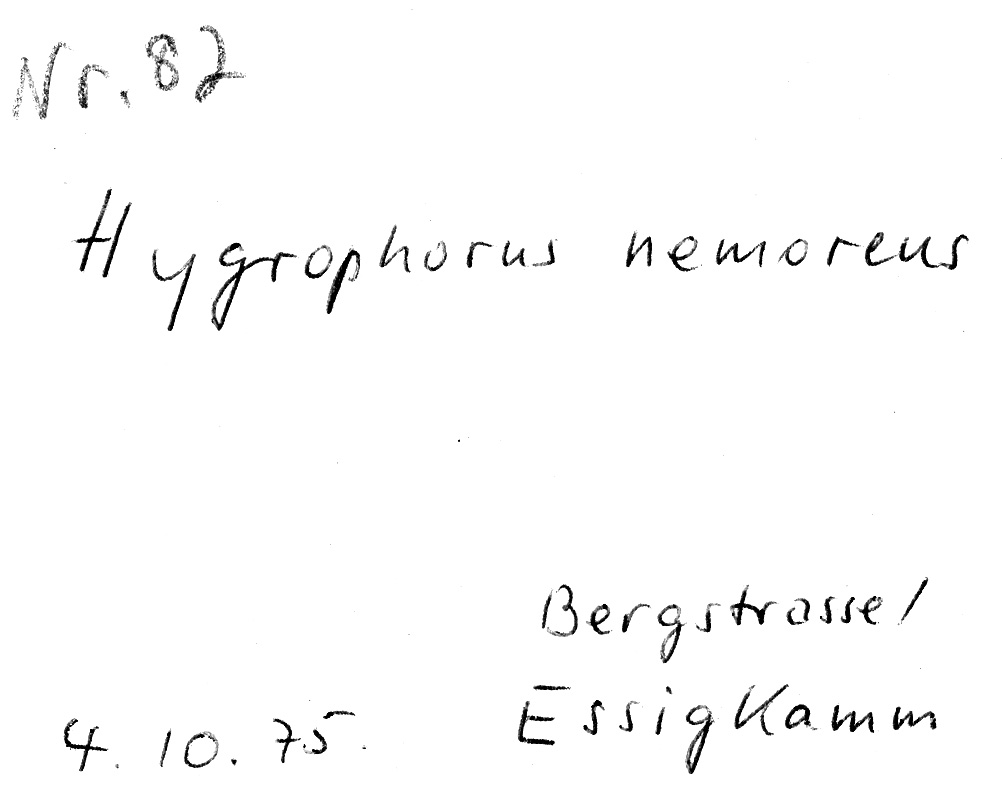 Nr. 82
Hygrophorus nemoreus
Bergstrasse/
Essigkamm
4. 10. 75.